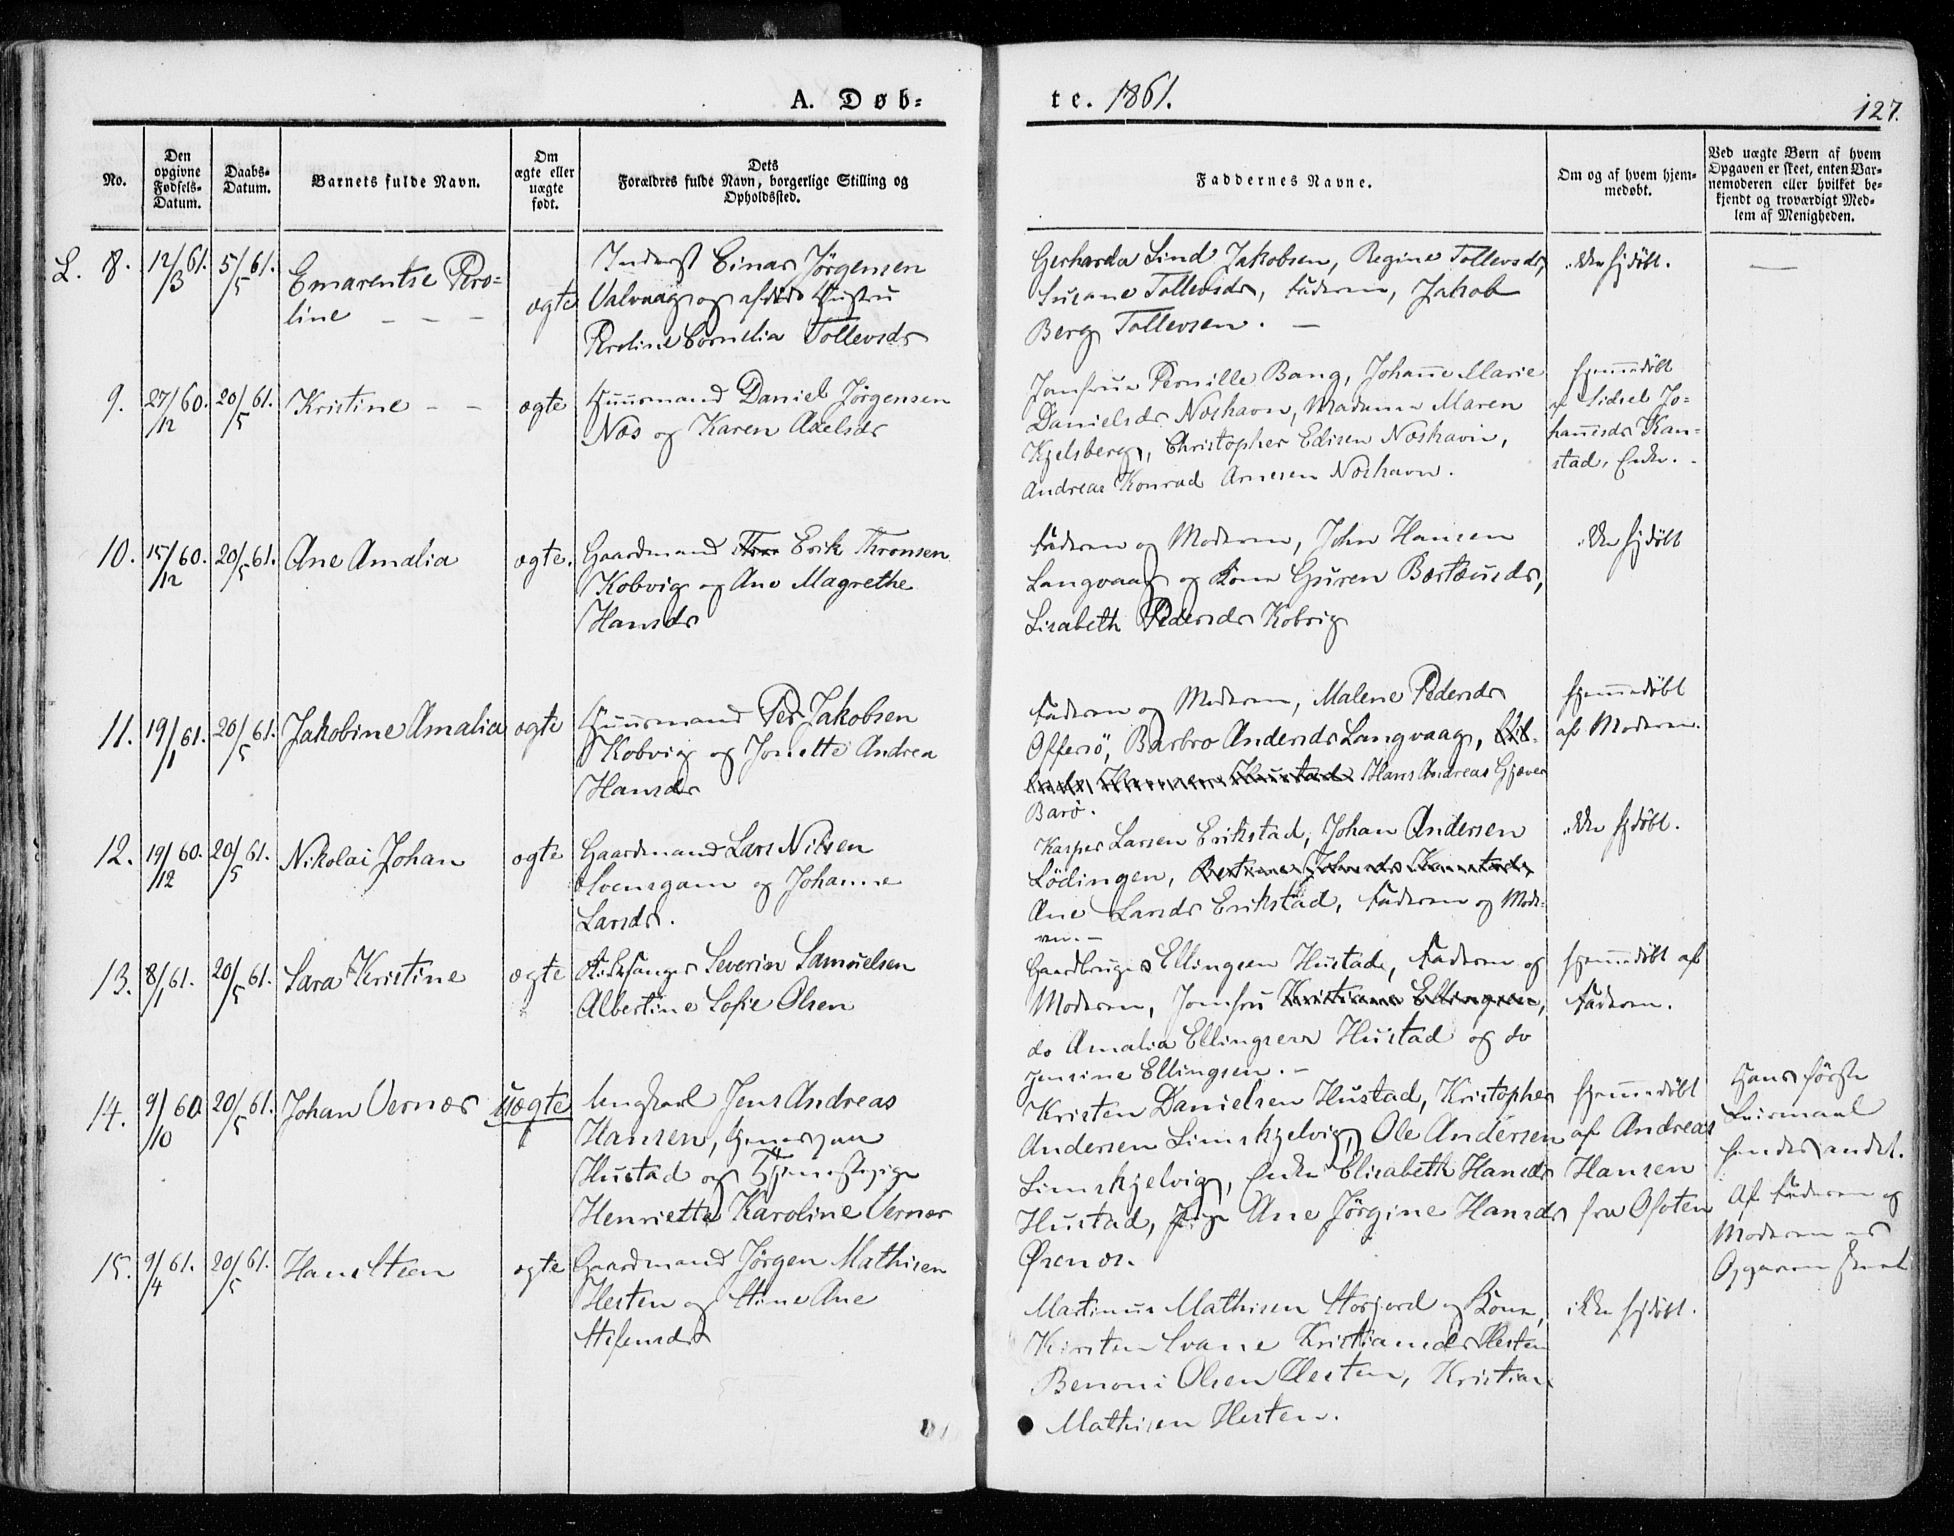 A. Døb=
te. 1861.
127.
No.
Den
opgivne
Fødsels-
Datum.
Daabs-
Datum.
Barnets fulde Navn.
Om
ægte eller
uægte
født.
Dets
Forældres fulde Navn, borgerlige Stilling og
Opholdssted.
Faddernes Navne.
Om og af hvem hjem-
medøbt.
Ved uægte Børn af hvem
Opgaven er skeet, enten Bar-
nemoderen eller hvilket be-
kjendt og troværdigt Med-
lem af Menigheden.
L. 8.
12/3 61.
5/5 61.
Emarentse Pero-
line - - -
ægte
Inderst Einar Jørgensen
Valvaag og afdøde Hustru
Peroline Cornelia Tollevsdr
Gerharda Lind Jakobsen, Regine Tollevsdr,
Susane Tollevsdr, Faderen, Jakob
Berg Tollevsen. -
ikke hjdøbt.
9.
27/12 60.
20/5 61.
Kristine - -
ægte
Huusmand Daniel Jørgensen
Næs og Karen Axelsdr
Jomfrue Pernille Bang, Johanne Marie
Danielsdr Næshavn, Madame Maren
Kjelsberg, Christopher Edisen Næshavn,
Andreas Konrad Arnesen Næshavn.
hjemmedøbt
af Sidsel Jo-
hannesdr Kan-
stad, Enke. -
10.
15/12 60.
20/5 61.
Ane Amalia
ægte.
Gaardmand Erik Thronsen
Kobvig og Ane Magrethe
Hansdr
Faderen og Moderen, John Hansen
Langvaag og Kone Guren Bærtæusdr,
Lisabeth Pedersdr Kobvig
ikke hjdøbt
11.
19/1 61.
20/5 61.
Jakobine Amalia
ægte
Huusmand Per Jakobsen
Kobvig og Jonette Andrea
Hansdr
Faderen og Moderen, Malene Pedersdr
Offersö, Barbro Andersdr Langvaag,
Hans Andreas Gjæver
Barö.
hjemmedøbt
af Moderen.
12.
19/12 60.
20/5 61.
Nikolai Johan
ægte
Gaardmand Lars Nilsen
Svensgam og Johanne
Larsdr.
Kasper Larsen Erikstad, Johan Andersen
Lödingen,
Ane Larsdr Erikstad, Faderen og Mode-
ren. -
ikke hjdøbt.
13.
8/1 61.
20/5 61.
Sara Kristine
ægte
Kirkesanger Severin Samuelsen
Albertine Sofie Olsen
Gaardbruger Ellingsen Hustad, Faderen og
Moderen, Jomfru Kristiane Ellingsen,
do Amalia Ellingsen Hustad og do
Jensine Ellingsen. -
hjemmedøbt af
Faderen.
14.
9/10 60
20/5 61.
Johan Vernær
Uægte
Ungkarl Jens Andreas
Hansen,
Hustad og Tjenestepige
Henriette Karoline Verner
Kristen Danielsen Hustad, Kristopher
Andersen Limskjelvig, Ole Andersen
Limskjelvig, Enke Elisabeth Hansdr
Hustad, Pige Ane Jørgine Hansdr
Øsenæs.
hjemmedøbt
af Andreas
Hansen
fra Ofoten
Hans første
Leirmaal
hendes andet.
Af Faderen og
Moderen er
Opgaven skeet
15.
9/4 61.
20/5 61.
Hans Steen
ægte
Gaardmand Jørgen Mathisen
Hesten og Stine Ane
Stefensdr
Martinus Mathisen Storjord og Kone,
Kirsten Svane Kristiansdr Hesten
Benoni Olsen Hesten, Kristian
Mathisen Hesten.
ikke hjdøbt.